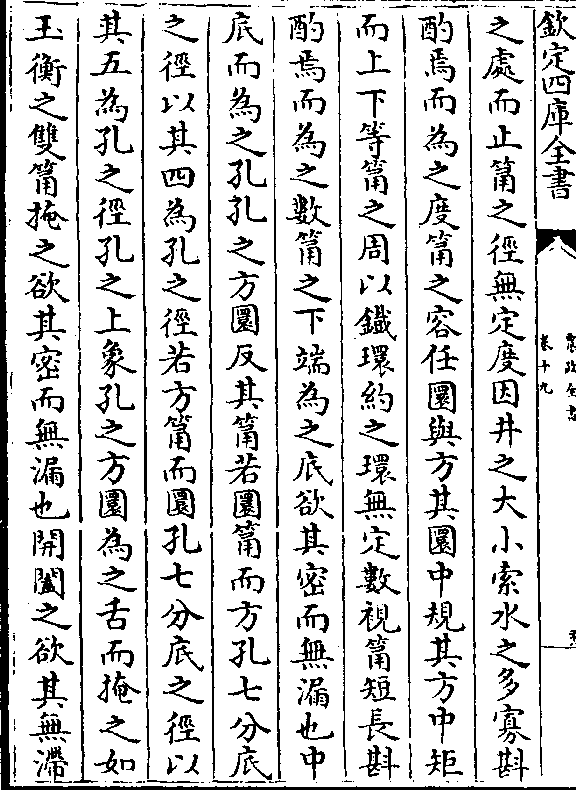 欽定四庫全書
農政全書
卷十九
之處而止筩之徑無定度因井之大小索水之多寡斟
酌焉而為之度筩之容任圜與方其圜中規其方中矩
而上下等筩之周以鐵環約之環無定數視筩短長斟
酌焉而為之數筩之下端為之底欲其密而無漏也中
底而為之孔孔之方圜反其筩若圜筩而方孔七分底
之徑以其四為孔之徑若方筩而圜孔七分底之徑以
其五為孔之徑孔之上象孔之方圜為之舌而掩之如
玉衡之雙筩掩之欲其密而無漏也開闔之欲其無滯